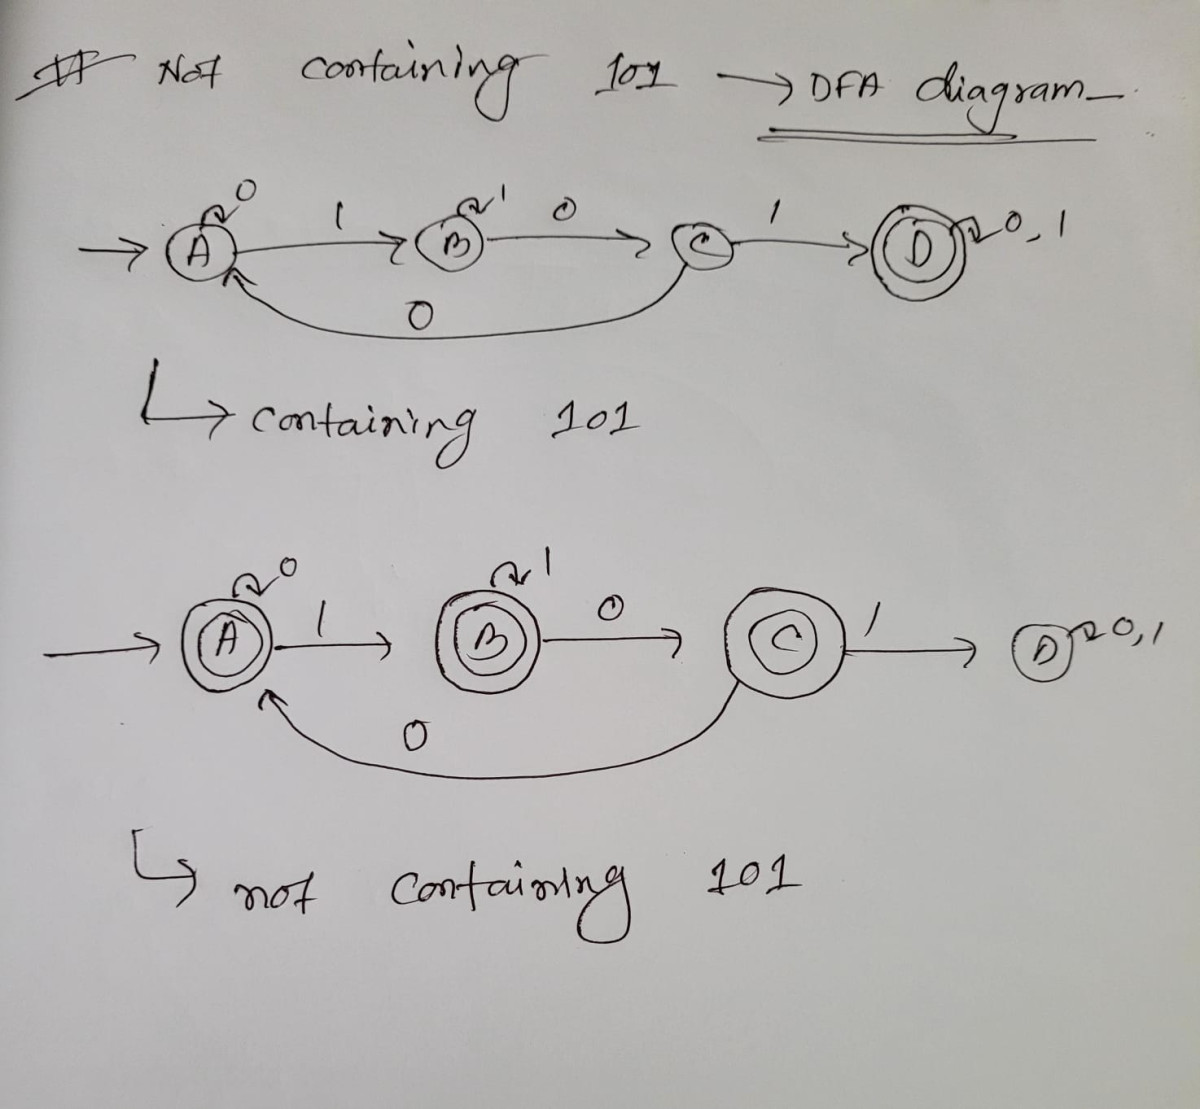 # Not containing 101 → DFA diagram
0 1 1 0 1 0, 1
→ A B C D
0
↳ containing 101
0 1 1 0 1 0, 1
→ A B C D
0
↳ not containing 101